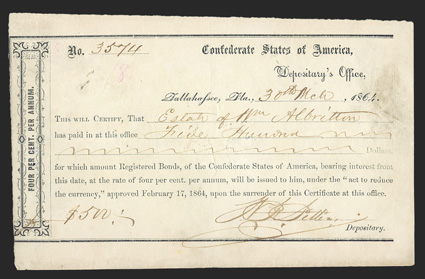 No. 3574 Confederate States of America,
Depositary's Office,
Tallahassee, Fla., 30th Mch, 1864.
THIS WILL CERTIFY, That Estate of Wm Albritton
has paid in at this office Five Hundred
Dollars,
for which amount Registered Bonds, of the Confederate States of America, bearing interest from
this date, at the rate of four per cent. per annum, will be issued to him, under the "act to reduce
the currency," approved February 17, 1864, upon the surrender of this Certificate at this office.
$500
Depositary.
FOUR PER CENT. PER ANNUM.